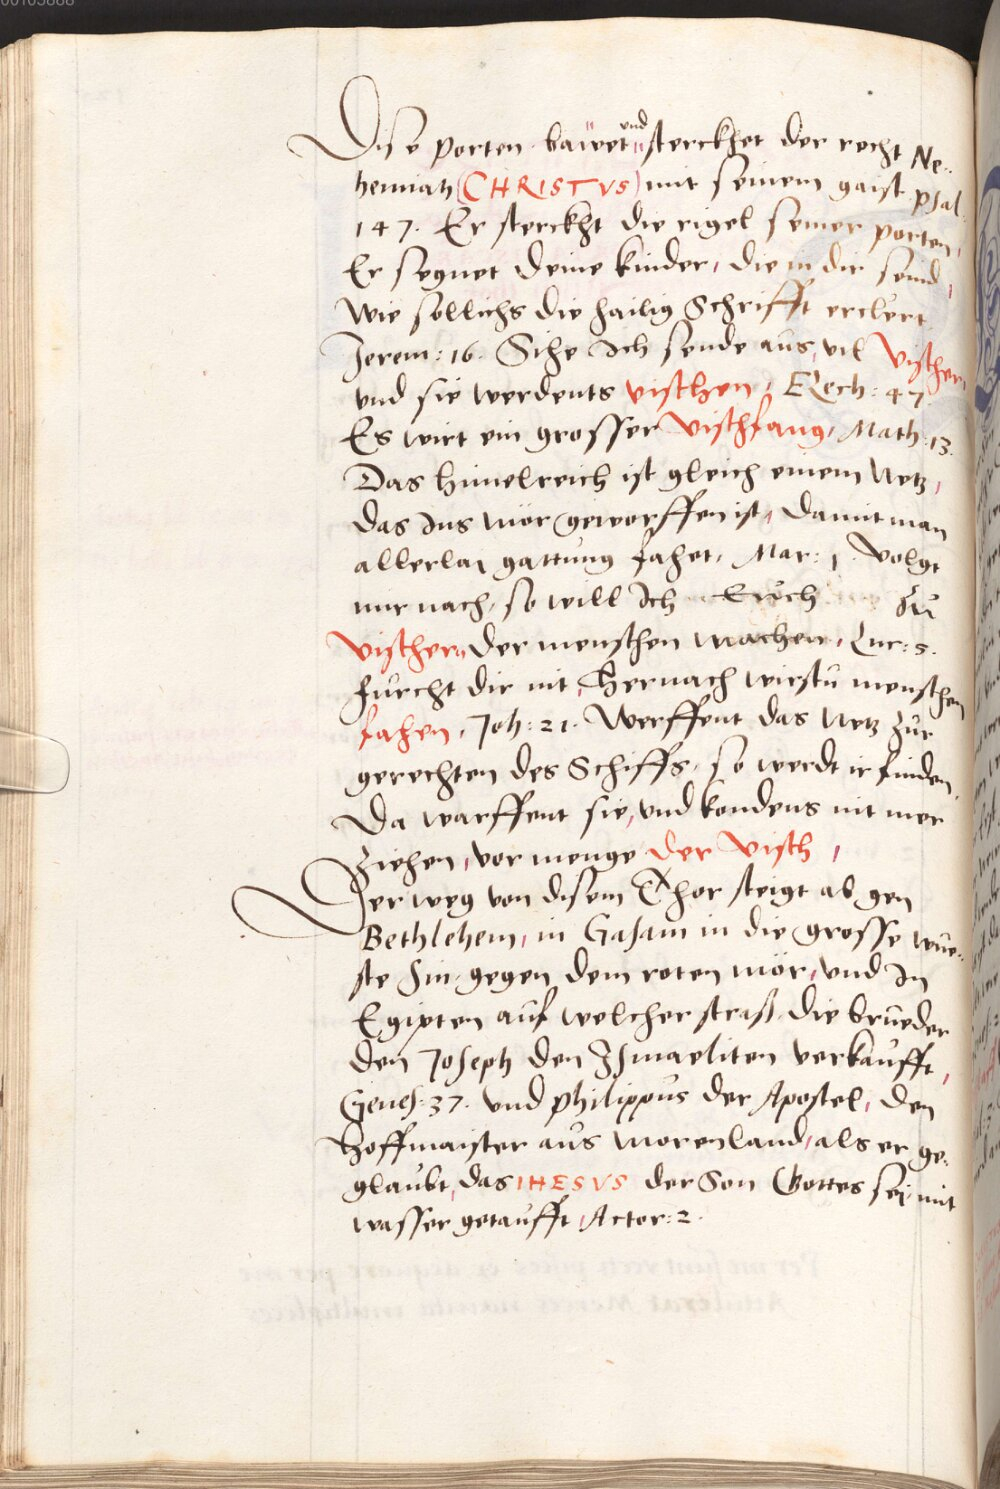 00105888
Dise porten bawet und sterckhet der recht Ne-
hemiah (CHRISTVS) mit seinem gaist. Psal.
147. Er sterckht die rigel seiner porten,
Er segnet deine kinder, die in dir seind,
wie sollichs die hailig Schrifft erclert
Jerem: 16. Sihe Ich sende aus vil Vischer
und sie werdents visthen, Ezech: 47.
Es wirt ein grosser Vischfang, Math: 13.
Das himelreich ist gleich einem Netz,
das Ins Mör geworffen ist, damit man
allerlaj gattung fahet, Mar: 1. Volgt
mir nach, so will Ich Euch zu
Vischern der menschen machen, Luc: 5.
furcht dir nit, Hernach wirstu menschen
fahen, Joh: 21. Werffent das Netz zur
gerechten des Schiffs, so werdt ir finden,
Da warffent sie, und kondens nit mer
ziehen, vor menge der Visch,
Der weg von disem Thor steigt ab gen
Bethlehem, in Gasam in die grosse wüe-
ste hin gegen dem roten mör, und In
Egipten auf welcher straß die brueder
den Joseph den Ismaeliten verkaufft,
Genes: 37. und Philippus der Apostel, den
Hoffmaister aus Morenland, als er ge-
glaubt, das IHESVS der Son Gottes sej, mit
wasser getaufft, Actor: 2.